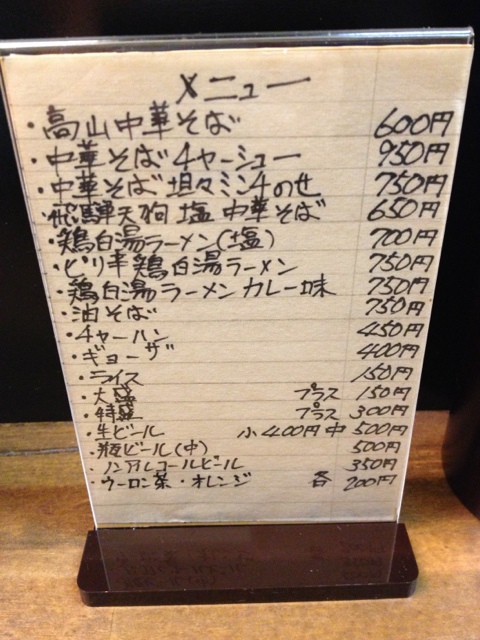 メニュー
・高山中華そば 600円
・中華そばチャーシュー 950円
・中華そば坦々ミンチのせ 750円
・飛騨天狗 塩 中華そば 650円
・鶏白湯ラーメン(塩) 700円
・ピリ辛鶏白湯ラーメン 750円
・鶏白湯ラーメンカレー味 750円
・油そば 750円
・チャーハン 450円
・ギョーザ 400円
・ライス 150円
・大盛 プラス 150円
・特盛 プラス 300円
・生ビール 小400円 中500円
・瓶ビール(中) 500円
・ノンアルコールビール 350円
・ウーロン茶・オレンジ 各 200円